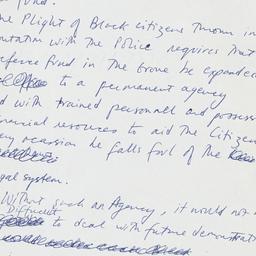 he Plight of Black Citizens thrown in
with the Police requires that
fund in the Grove be expanded
to a permanent agency
d with trained personnel and possess
nancial resources to aid the Citizen
occasion he falls foul of the
gal system.
Without such an Agency, it would not
Difficult
to deal with future demonstrat